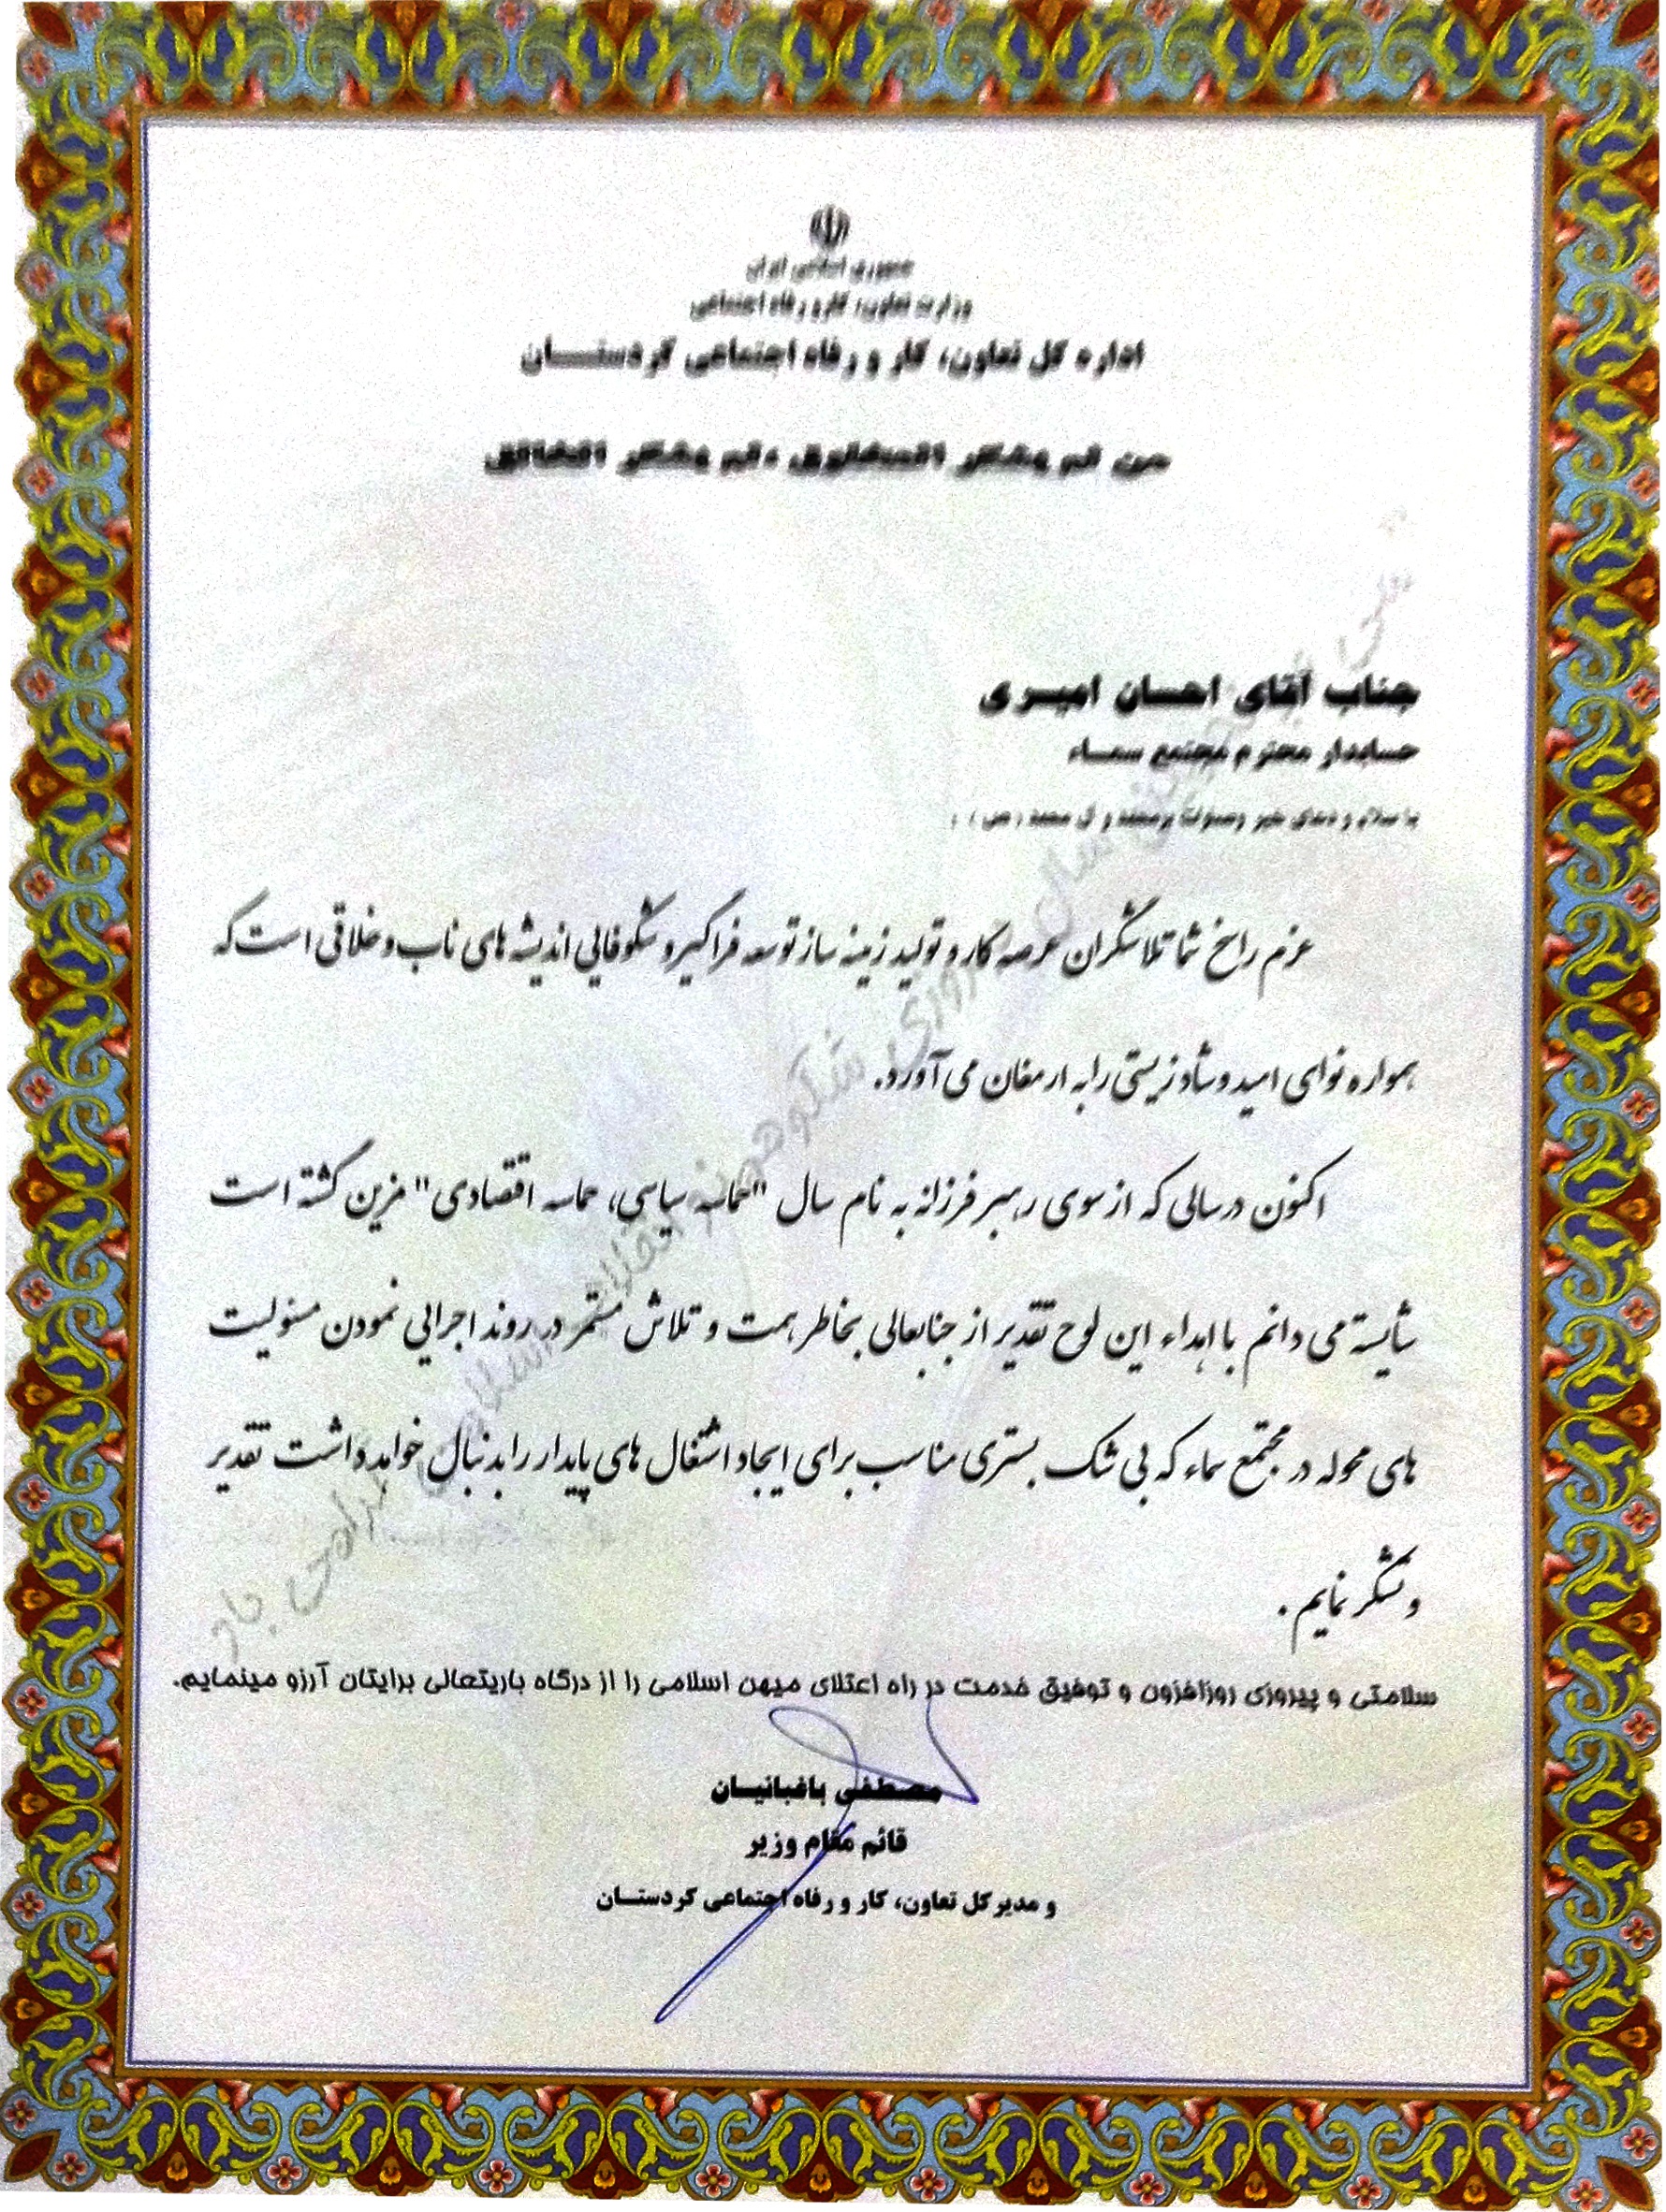 جمهوری اسلامی ایران
وزارت تعاون، کار و رفاه اجتماعی
اداره کل تعاون، کار و رفاه اجتماعی کردستـــان
من لم یشکر المخلوق ،لم یشکر الخالق
جناب آقای احسان امیـری
حسابدار محترم مجتمع سمـاء
با سلام و دعای خیر وصلوات برمحمد و آل محمد (ص) ؛
عزم راسخ شما تلاشگران عرصه کار و تولید زمینه ساز توسعه فراگیر و شکوفایی اندیشه های ناب و خلاقی است که
همواره نوای امید و شاد زیستی را به ارمغان می آورد.
اکنون در سالی که از سوی رهبر فرزانه به نام سال "حماسه سیاسی، حماسه اقتصادی" مزین گشته است
شایسته می دانم با اهداء این لوح تقدیر از جنابعالی بخاطر همت و تلاش مستمر در روند اجرایی نمودن مسئولیت
های محوله در مجتمع سماء که بی شک بستری مناسب برای ایجاد اشتغال های پایدار را بدنبال خواهد داشت تقدیر
و تشکر نمایم .
سلامتی و پیروزی روزافزون و توفیق خدمت در راه اعتلای میهن اسلامی را از درگاه باریتعالی برایتان آرزو مینمایم.
مصطفی باغبانیـان
قائم مقام وزیر
و مدیرکل تعاون، کار و رفاه اجتماعی کردستـان